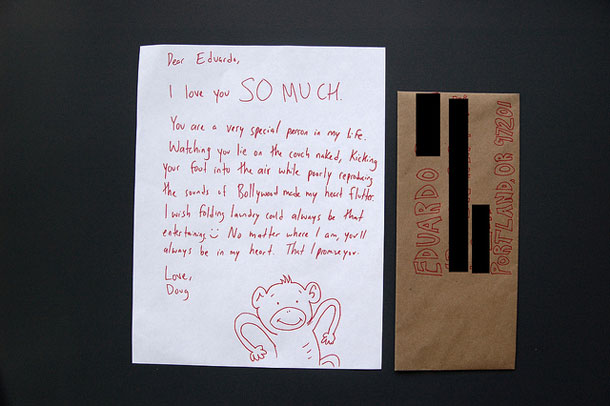 Dear Eduardo,
I love you SO MUCH.
You are a very special person in my life.
Watching you lie on the couch naked, kicking
your foot into the air while poorly reproducing
the sounds of Bollywood made my heart flutter.
I wish folding laundry could always be that
entertaining. No matter where I am, you'll
always be in my heart. That I promise you.
Love,
Doug
EDUARDO
PORTLAND, OR 97201